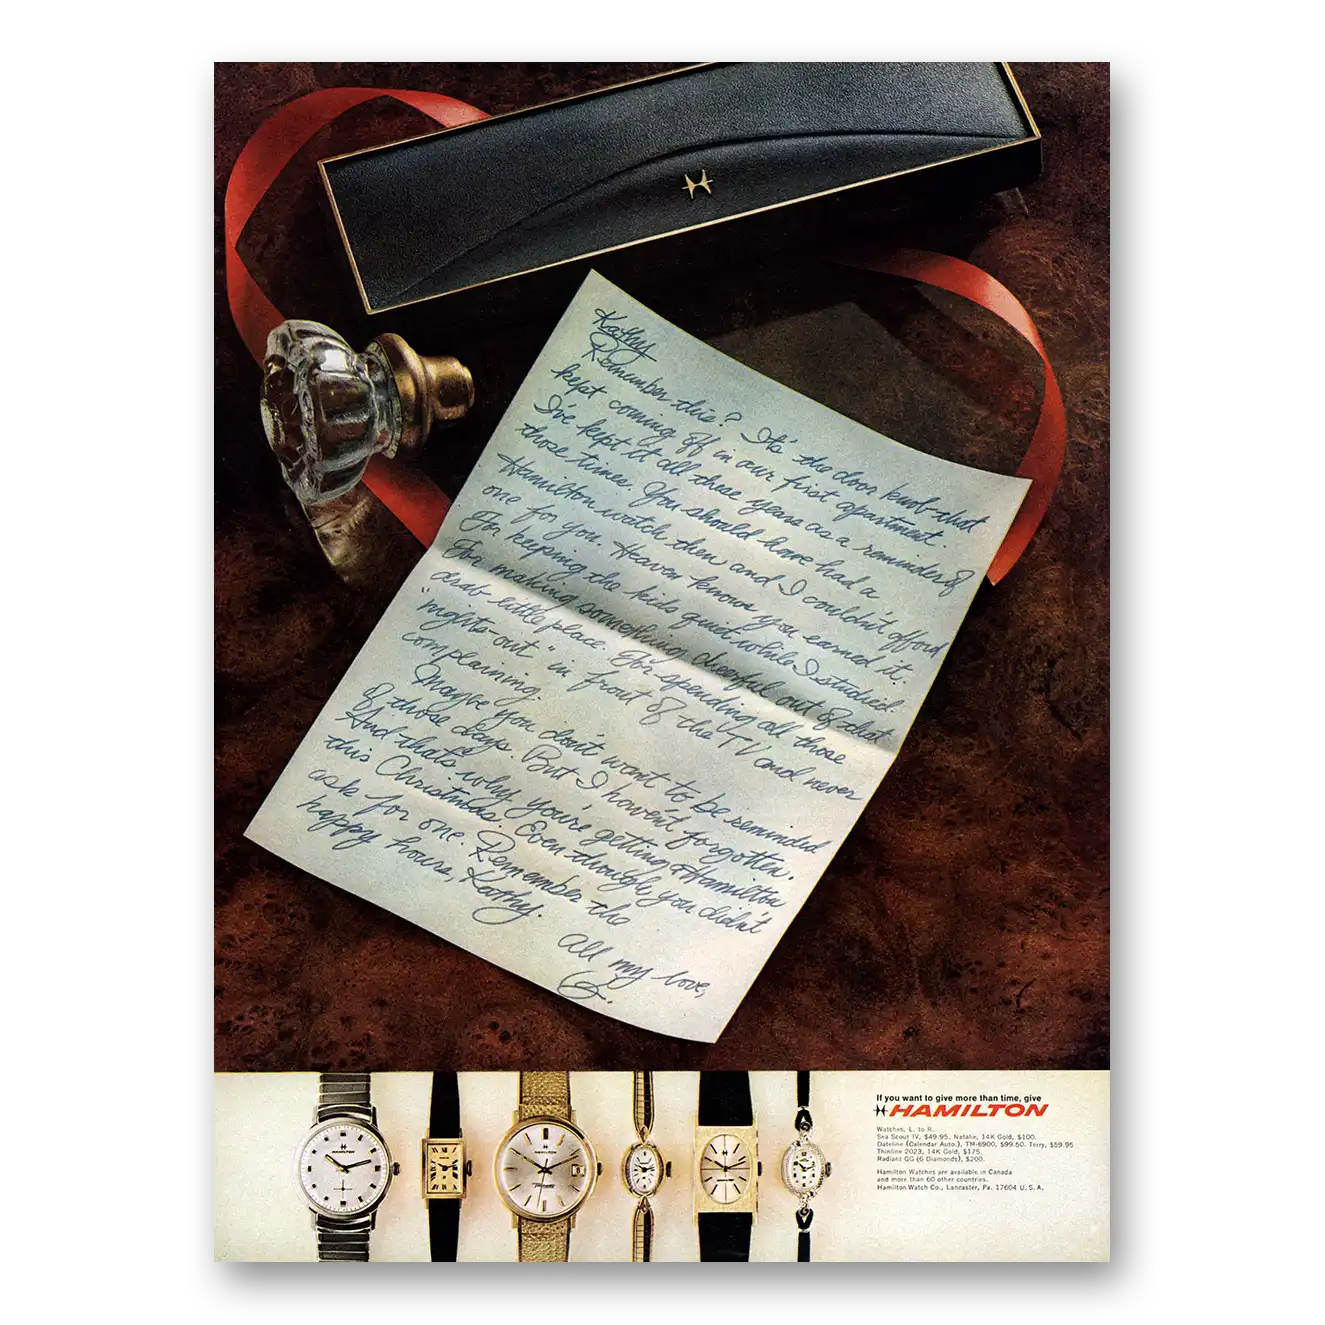 Kathy
Remember this? It's the door knob that
kept coming off in our first apartment.
I've kept it all these years as a reminder of
those times. You should have had a
Hamilton watch then and I couldn't afford
one for you. Heaven knows you earned it.
For keeping the kids quiet while I studied.
For making something cheerful out of that
drab little place. For spending all those
"nights-out" in front of the TV and never
complaining.
Maybe you don't want to be reminded
of those days. But I haven't forgotten.
And that's why you're getting a Hamilton
this Christmas. Even though you didn't
ask for one. Remember the
happy hours, Kathy.
All my love,
G.
If you want to give more than time, give
HAMILTON
Watches, L. to R.
Sea Scout IV, $49.95. Natalie, 14K Gold, $100.
Dateline (Calendar Auto.), TM-6900, $99.50. Terry, $59.95
Thinline 2023, 14K Gold, $175.
Radiant GG (6 Diamonds), $200.
Hamilton Watches are available in Canada
and more than 60 other countries.
Hamilton Watch Co., Lancaster, Pa. 17604 U.S.A.
HAMILTON